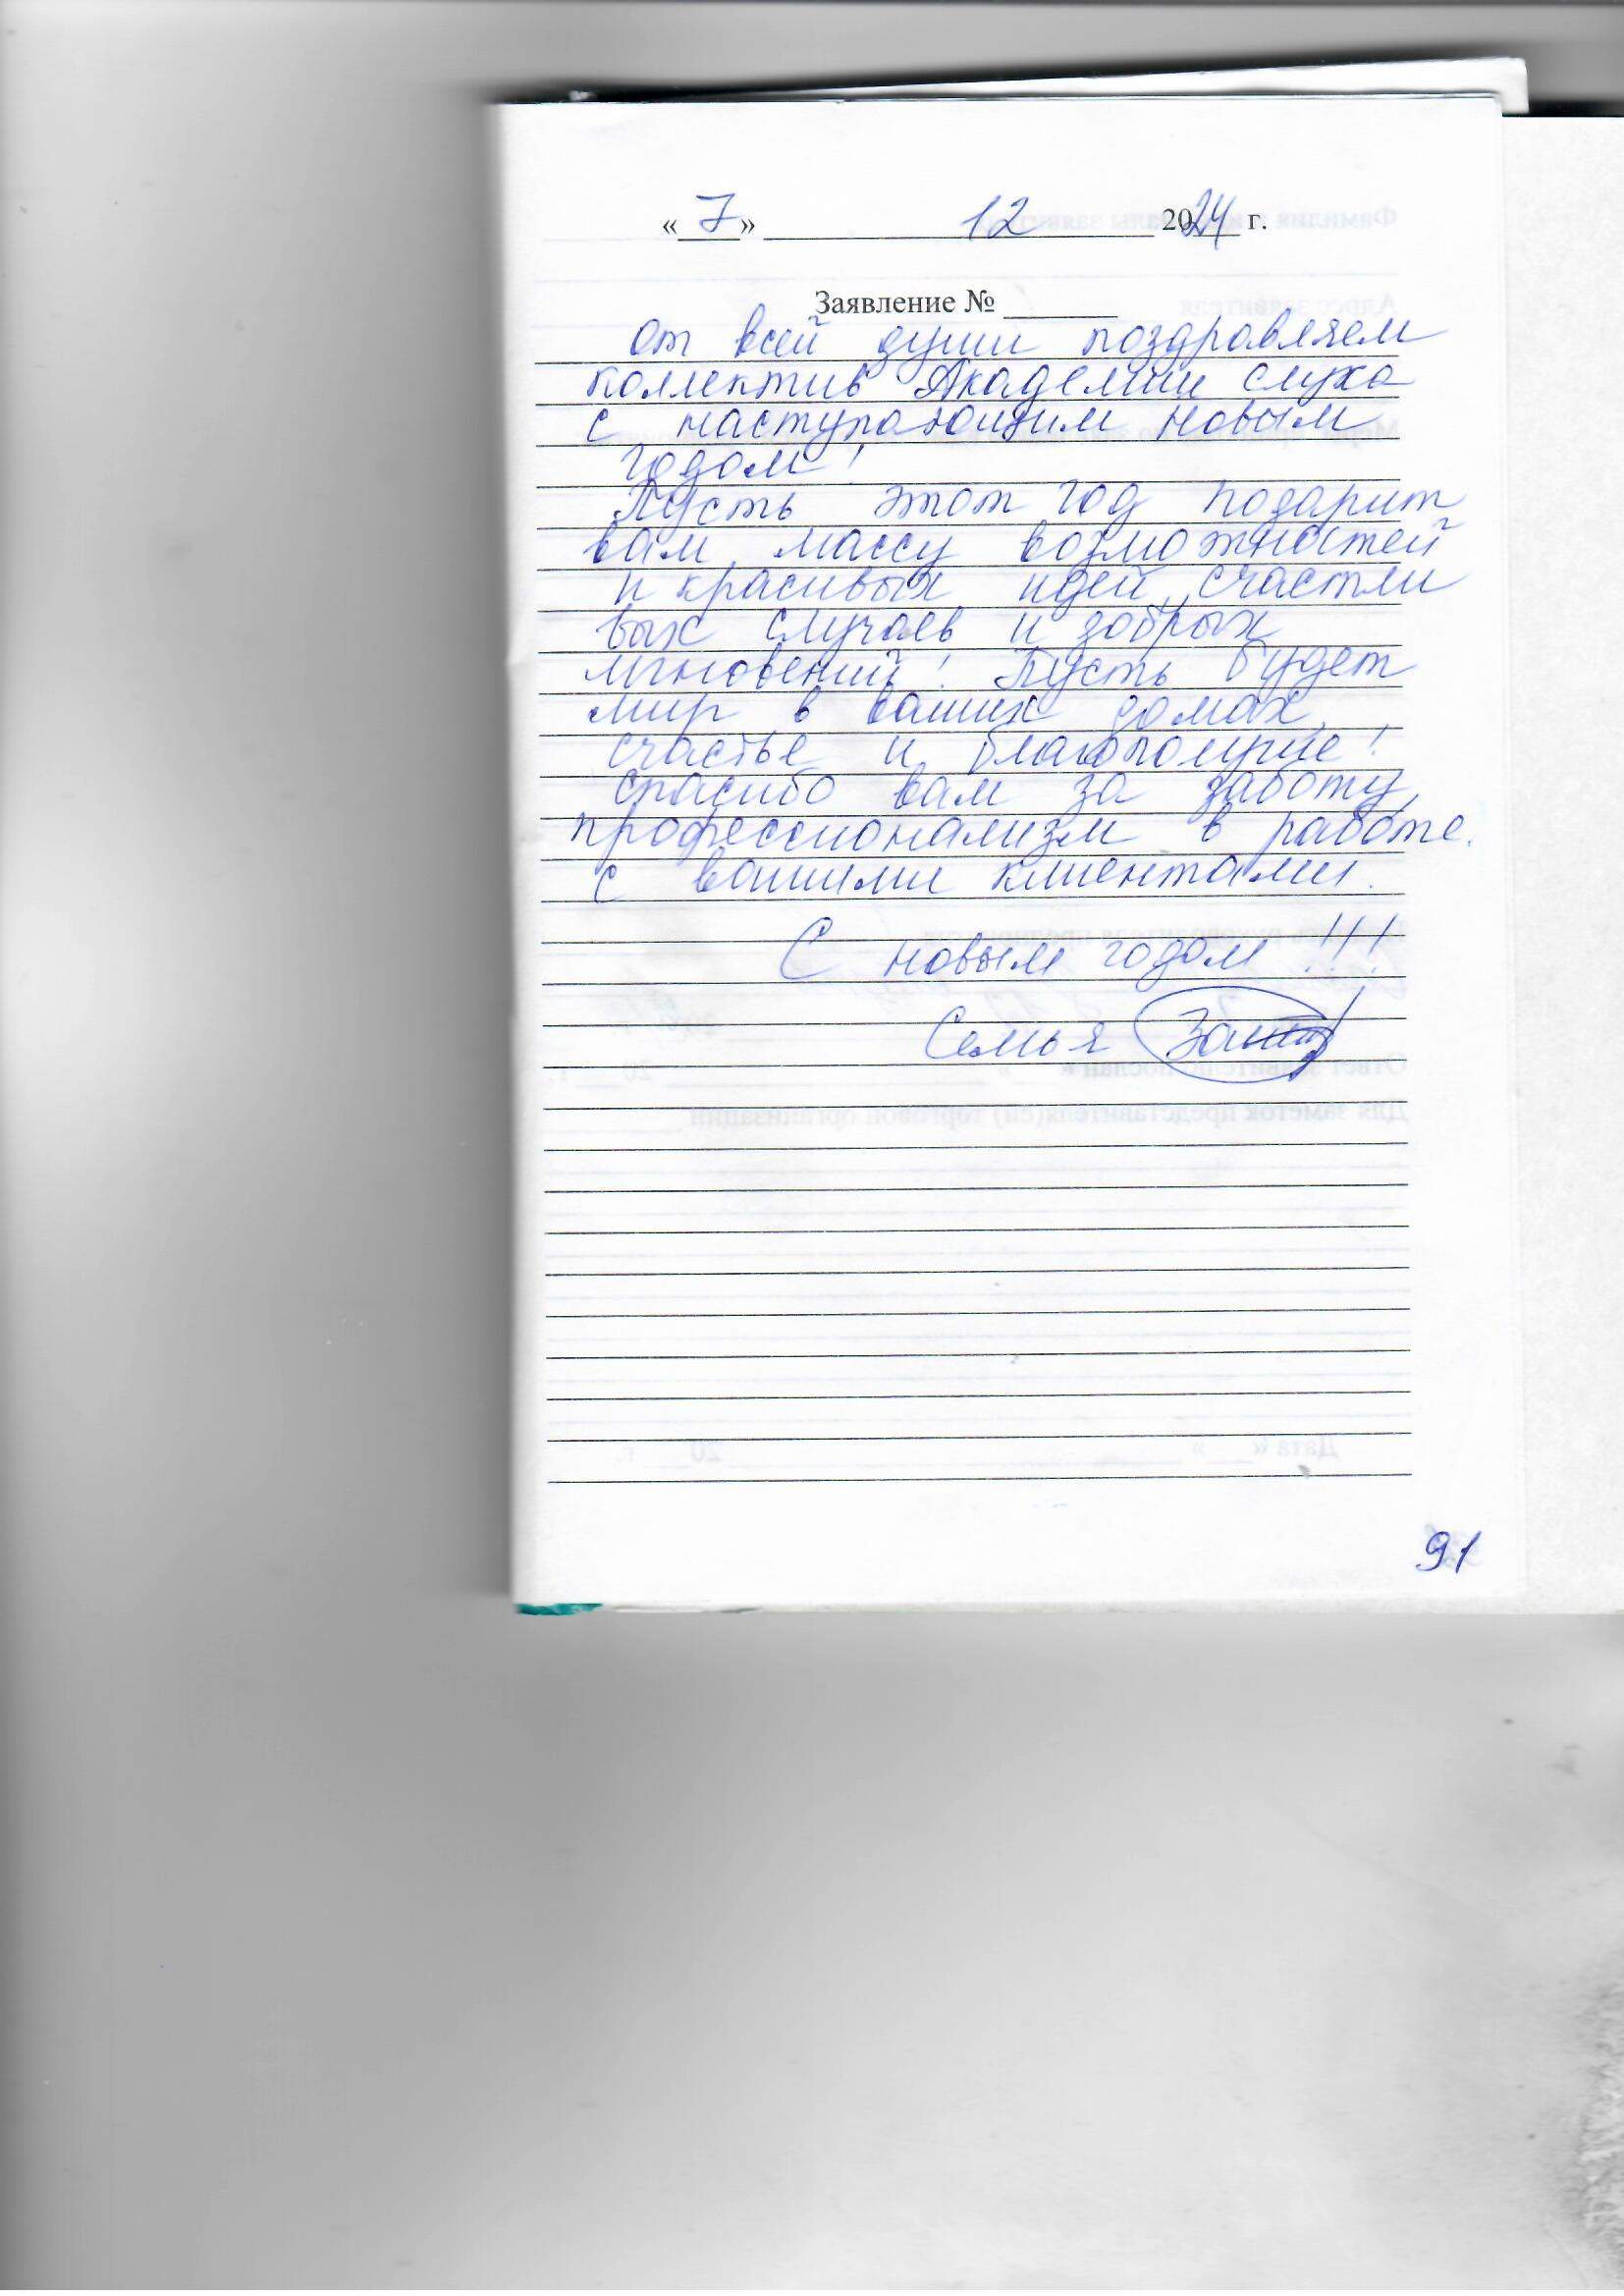 «7» 12 2024 г.
Заявление №
От всей души поздравляем
коллектив Академии слуха
с наступающим новым
годом!
Пусть этот год подарит
вам массу возможностей
и красивых идей, счастли
вых случаев и добрых
мгновений! Пусть будет
мир в ваших домах,
счастье и благополучие!
Спасибо вам за заботу,
профессионализм в работе
с вашими клиентами.
С новым годом!!!
Семья
91